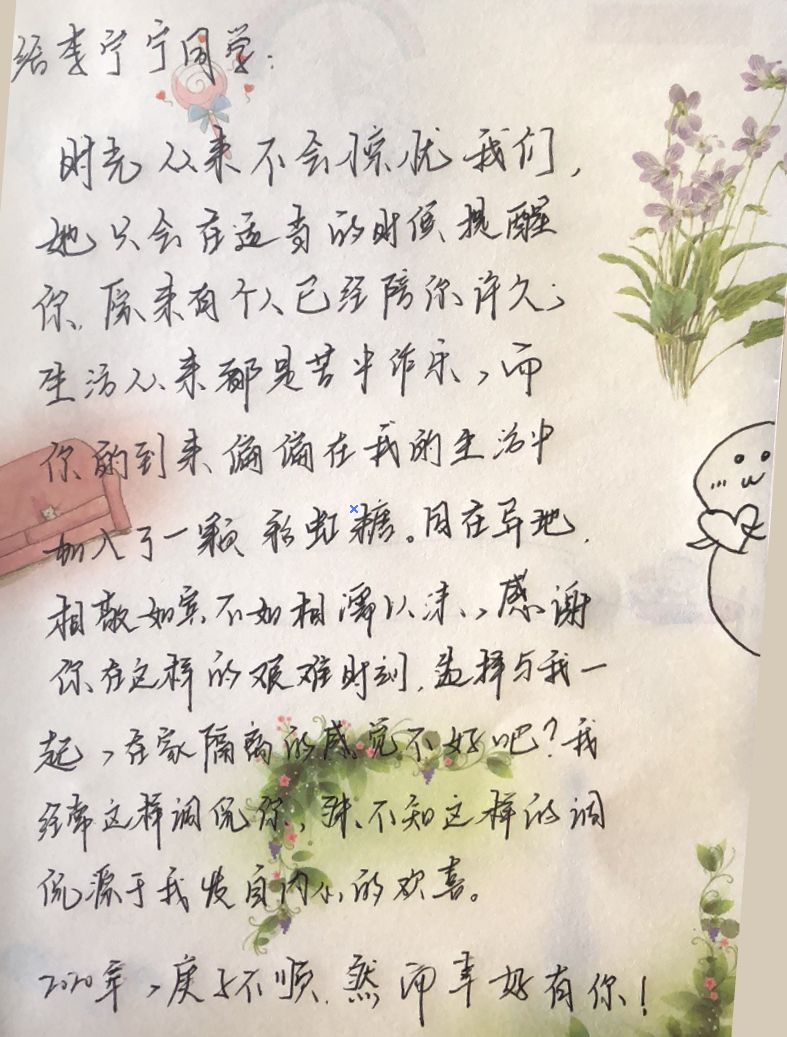 给李宁宁同学:
时光从来不会惊扰我们,
她只会在适当的时候提醒
你,原来有个人已经陪你许久;
生活从来都是苦中作乐,而
你的到来偏偏在我的生活中
加入了一颗彩虹糖。因在异地,
相敬如宾不如相濡以沫,感谢
你在这样的艰难时刻,选择与我一
起,在家隔离的感觉不好吧?我
经常这样调侃你,殊不知这样的调
侃源于我发自内心的欢喜。
2020年,庚子不顺,然而幸好有你!